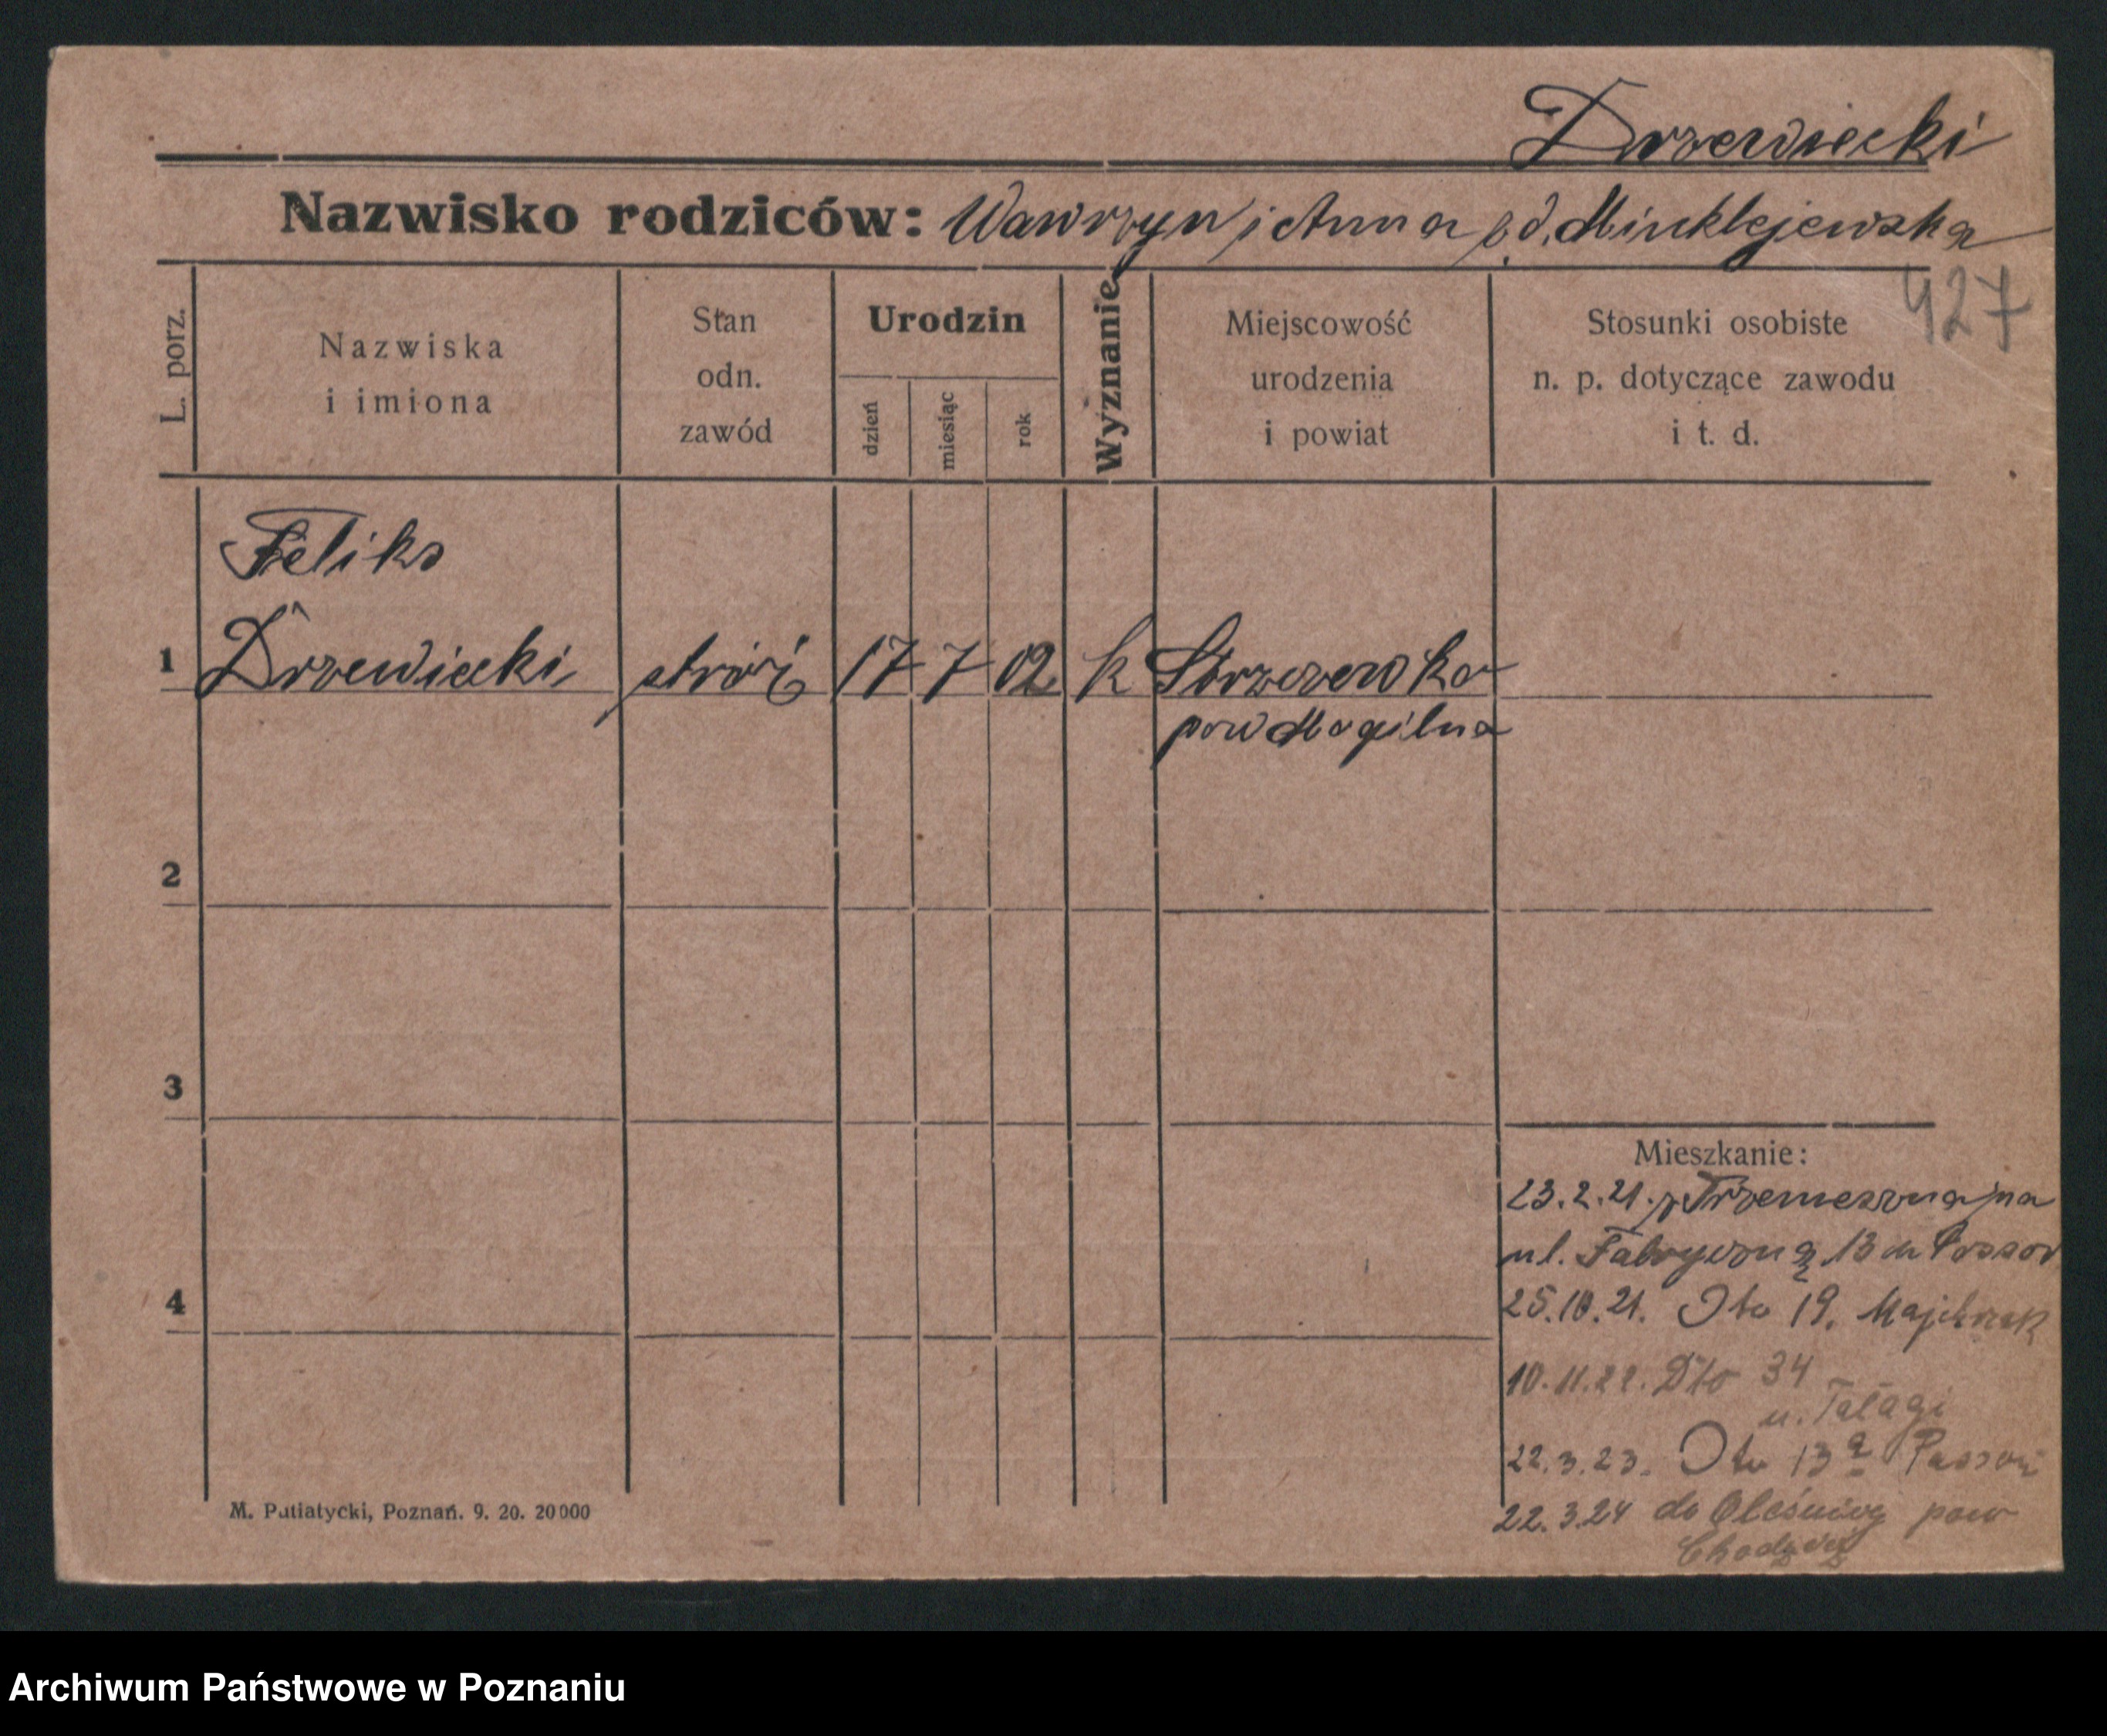 Drzewiecki
Nazwisko rodziców: Wawrzyn i Anna z d. Minklejewska
427
L. porz.
Nazwiska
i imiona
Stan
odn.
zawód
Urodzin
dzień
miesiąc
rok
Wyznanie
Miejscowość
urodzenia
i powiat
Stosunki osobiste
n. p. dotyczące zawodu
i t. d.
Feliks
1 Drzewiecki stróż 17 7 02 k Strzezewka
pow Mogilna
2
3
4
Mieszkanie:
23.2.21. z Trzemeszna na
ul. Fabryczną 13
25.10.21. Dto 19.
10.11.22. Dto 34
u. Tatagi
22.3.23. Dto 13a
22.3.24 do pow
M. Putiatycki, Poznań. 9. 20. 20000
Archiwum Państwowe w Poznaniu